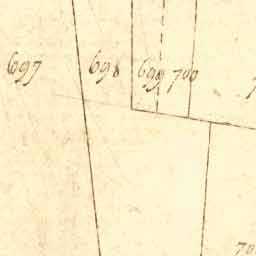 697 698 699 700